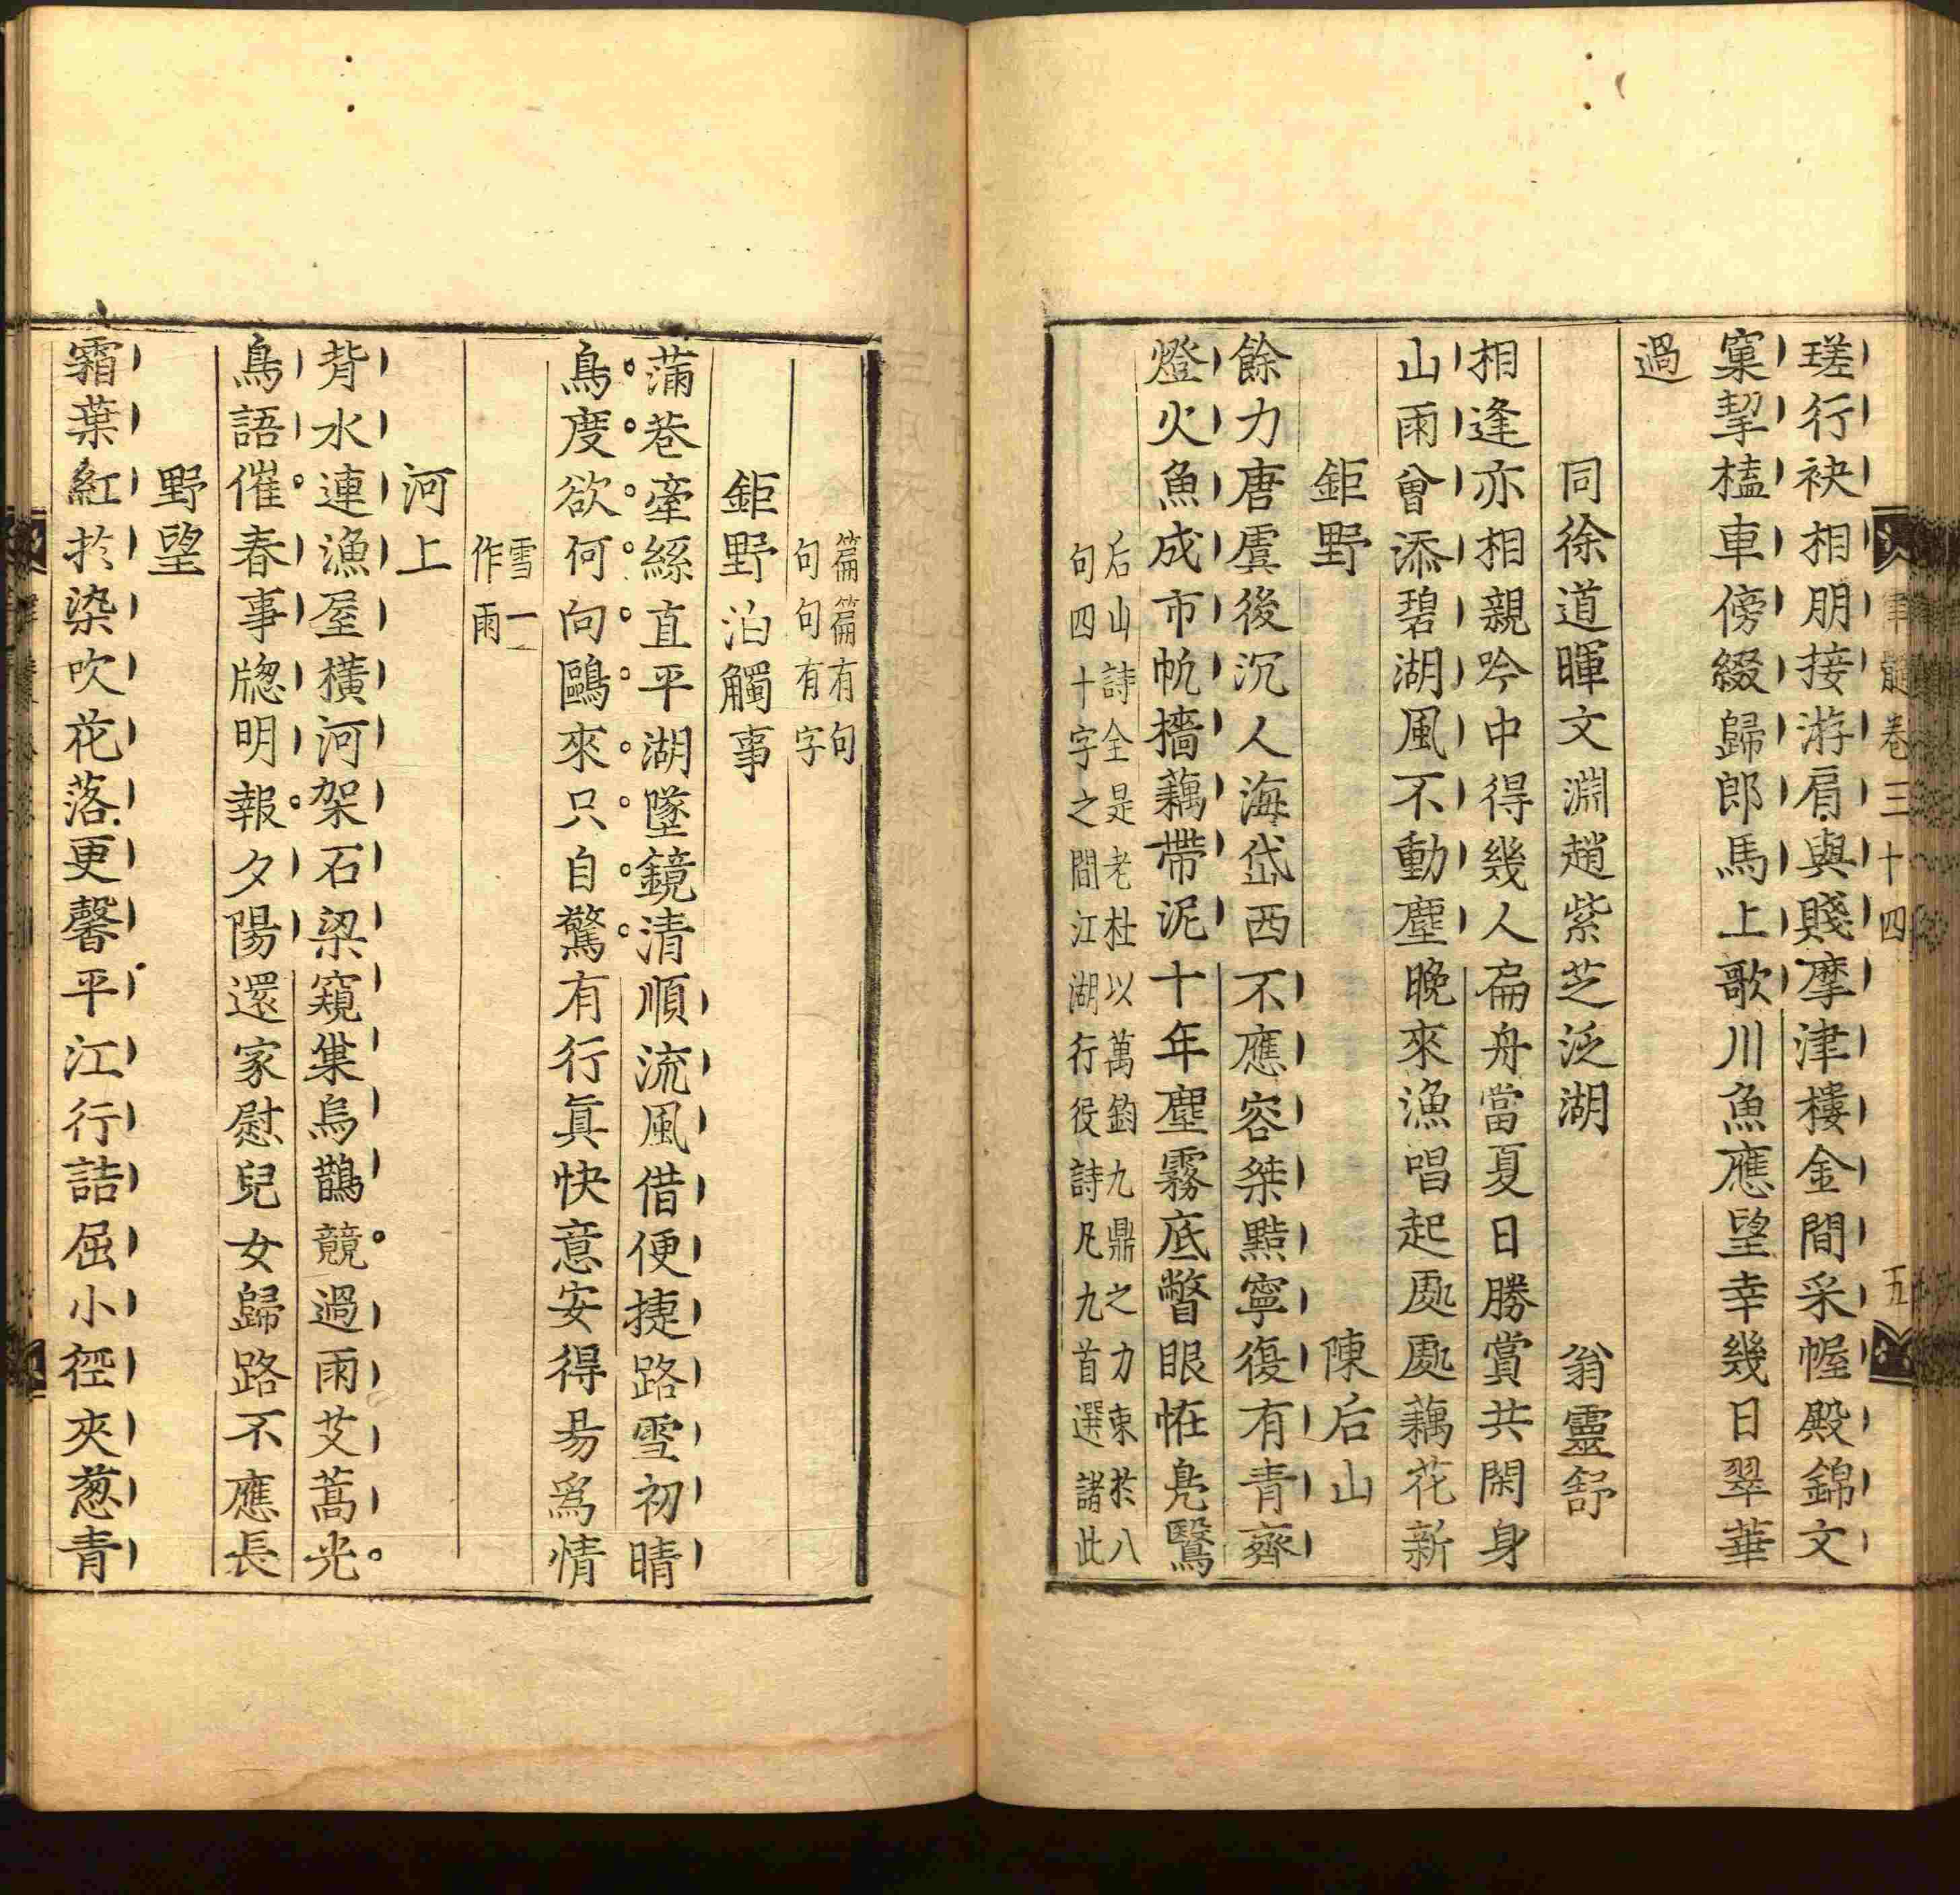 律髓卷三十四 五
瑳行袂相朋接游肩與賤摩津樓金間采幄殿錦文
窠挈榼車傍綴歸郎馬上歌川魚應望幸幾日翠華
過
同徐道暉文淵趙紫芝泛湖 翁靈舒
相逢亦相親吟中得幾人扁舟當夏日勝賞共閑身
山雨曾添碧湖風不動塵晚來漁唱起處處藕花新
鉅野 陳后山
餘力唐虞後沉人海岱西不應容桀黠寧復有青齊
燈火魚成市帆檣藕帶泥十年塵霧底瞥眼怪鳧鷖
后山詩全是老杜以萬鈞九鼎之力束於八
句四十字之間江湖行役詩凡九首選諸此
篇篇有句
句句有字
鉅野泊觸事
蒲巷牽絲直平湖墜鏡清順流風借便捷路雪初晴
鳥度欲何向鷗來只自驚有行眞快意安得易爲情
雪一
作雨
河上
背水連漁屋橫河架石梁窺巢烏鵲競過雨艾蒿光
鳥語催春事牕明報夕陽還家慰兒女歸路不應長
野望
霜葉紅於染吹花落更馨平江行詰屈小徑夾葱青